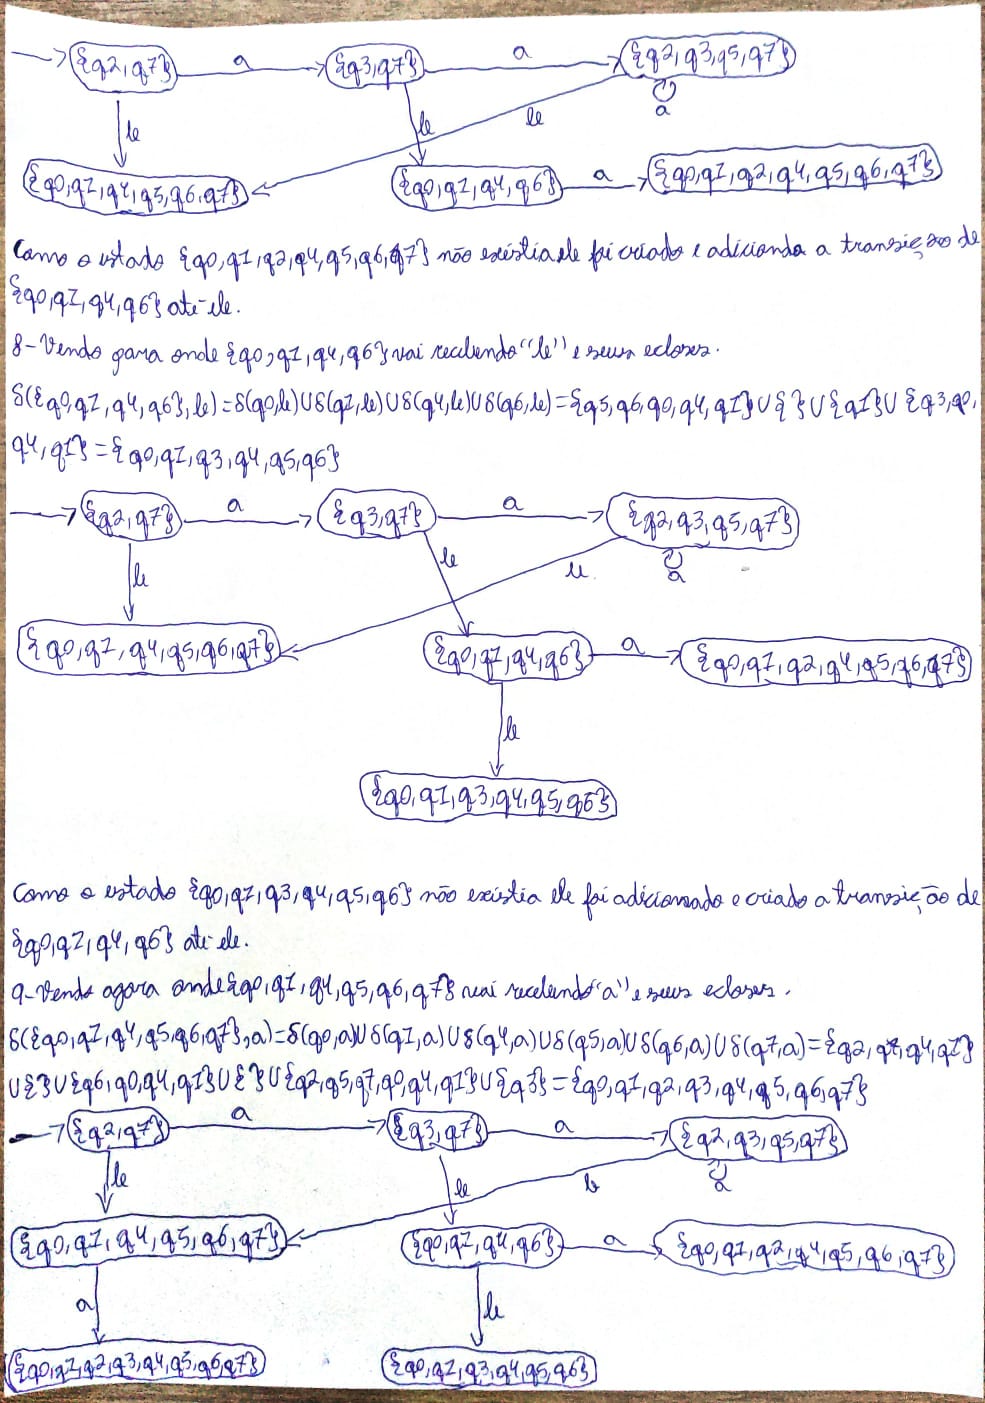 {q2,q7} a {q3,q7} a {q2,q3,q5,q7}
b b b a
{q0,q1,q4,q5,q6,q7} {q0,q1,q4,q6} a {q0,q1,q2,q4,q5,q6,q7}
Como o estado {q0,q1,q2,q4,q5,q6,q7} não existia ele foi criado e adicionda a transição de
{q0,q1,q4,q6} até ele.
8-Vendo para onde {q0,q1,q4,q6} vai recebendo "b" e seus ecloses.
δ({q0,q1,q4,q6},b)=δ(q0,b)∪δ(q1,b)∪δ(q4,b)∪δ(q6,b)={q5,q6,q0,q4,q1}∪{ }∪{q1}∪{q3,q0,
q4,q1}={q0,q1,q3,q4,q5,q6}
{q2,q7} a {q3,q7} a {q2,q3,q5,q7}
b b b a
{q0,q1,q4,q5,q6,q7} {q0,q1,q4,q6} a {q0,q1,q2,q4,q5,q6,q7}
b
{q0,q1,q3,q4,q5,q6}
Como o estado {q0,q1,q3,q4,q5,q6} não existia ele foi adicionado e criado a transição de
{q0,q1,q4,q6} até ele.
9-Vendo agora onde {q0,q1,q4,q5,q6,q7} vai recebendo "a" e seus ecloses.
δ({q0,q1,q4,q5,q6,q7},a)=δ(q0,a)∪δ(q1,a)∪δ(q4,a)∪δ(q5,a)∪δ(q6,a)∪δ(q7,a)={q2,q7,q4,q1}
∪{ }∪{q6,q0,q4,q1}∪{ }∪{q2,q5,q7,q0,q4,q1}∪{q3}={q0,q1,q2,q3,q4,q5,q6,q7}
{q2,q7} a {q3,q7} a {q2,q3,q5,q7}
b b b a
{q0,q1,q4,q5,q6,q7} {q0,q1,q4,q6} a {q0,q1,q2,q4,q5,q6,q7}
a b
{q0,q1,q2,q3,q4,q5,q6,q7} {q0,q1,q3,q4,q5,q6}